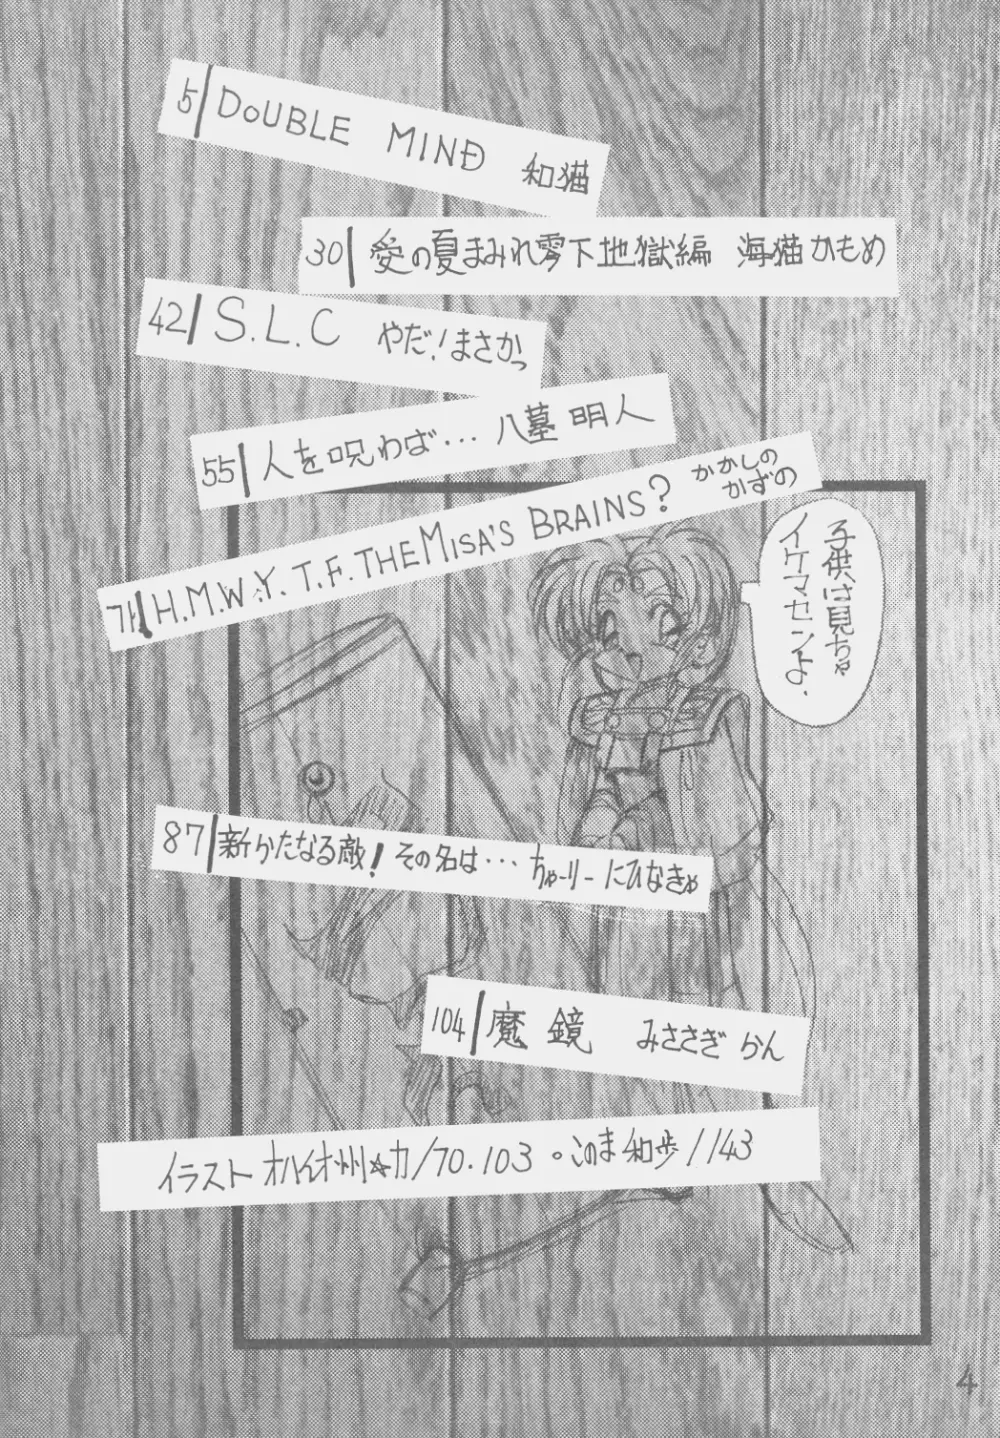 5 DOUBLE MIND 和猫
30 愛の夏まみれ零下地獄編 海猫かもめ
42 S.L.C やだ!まさかっ
55 人を呪わば… 八墓 明人
71 H.M.W.Y.T.F.THE MISA'S BRAINS? かかしの かずの
子供は見ちゃ
イケマセンよ.
87 新かたなる敵!その名は… ちゅーりー にひなきゅ
104 魔鏡 みささぎ らん
イラスト オハイオ州☆カ/70.103 。このま和歩/143
4